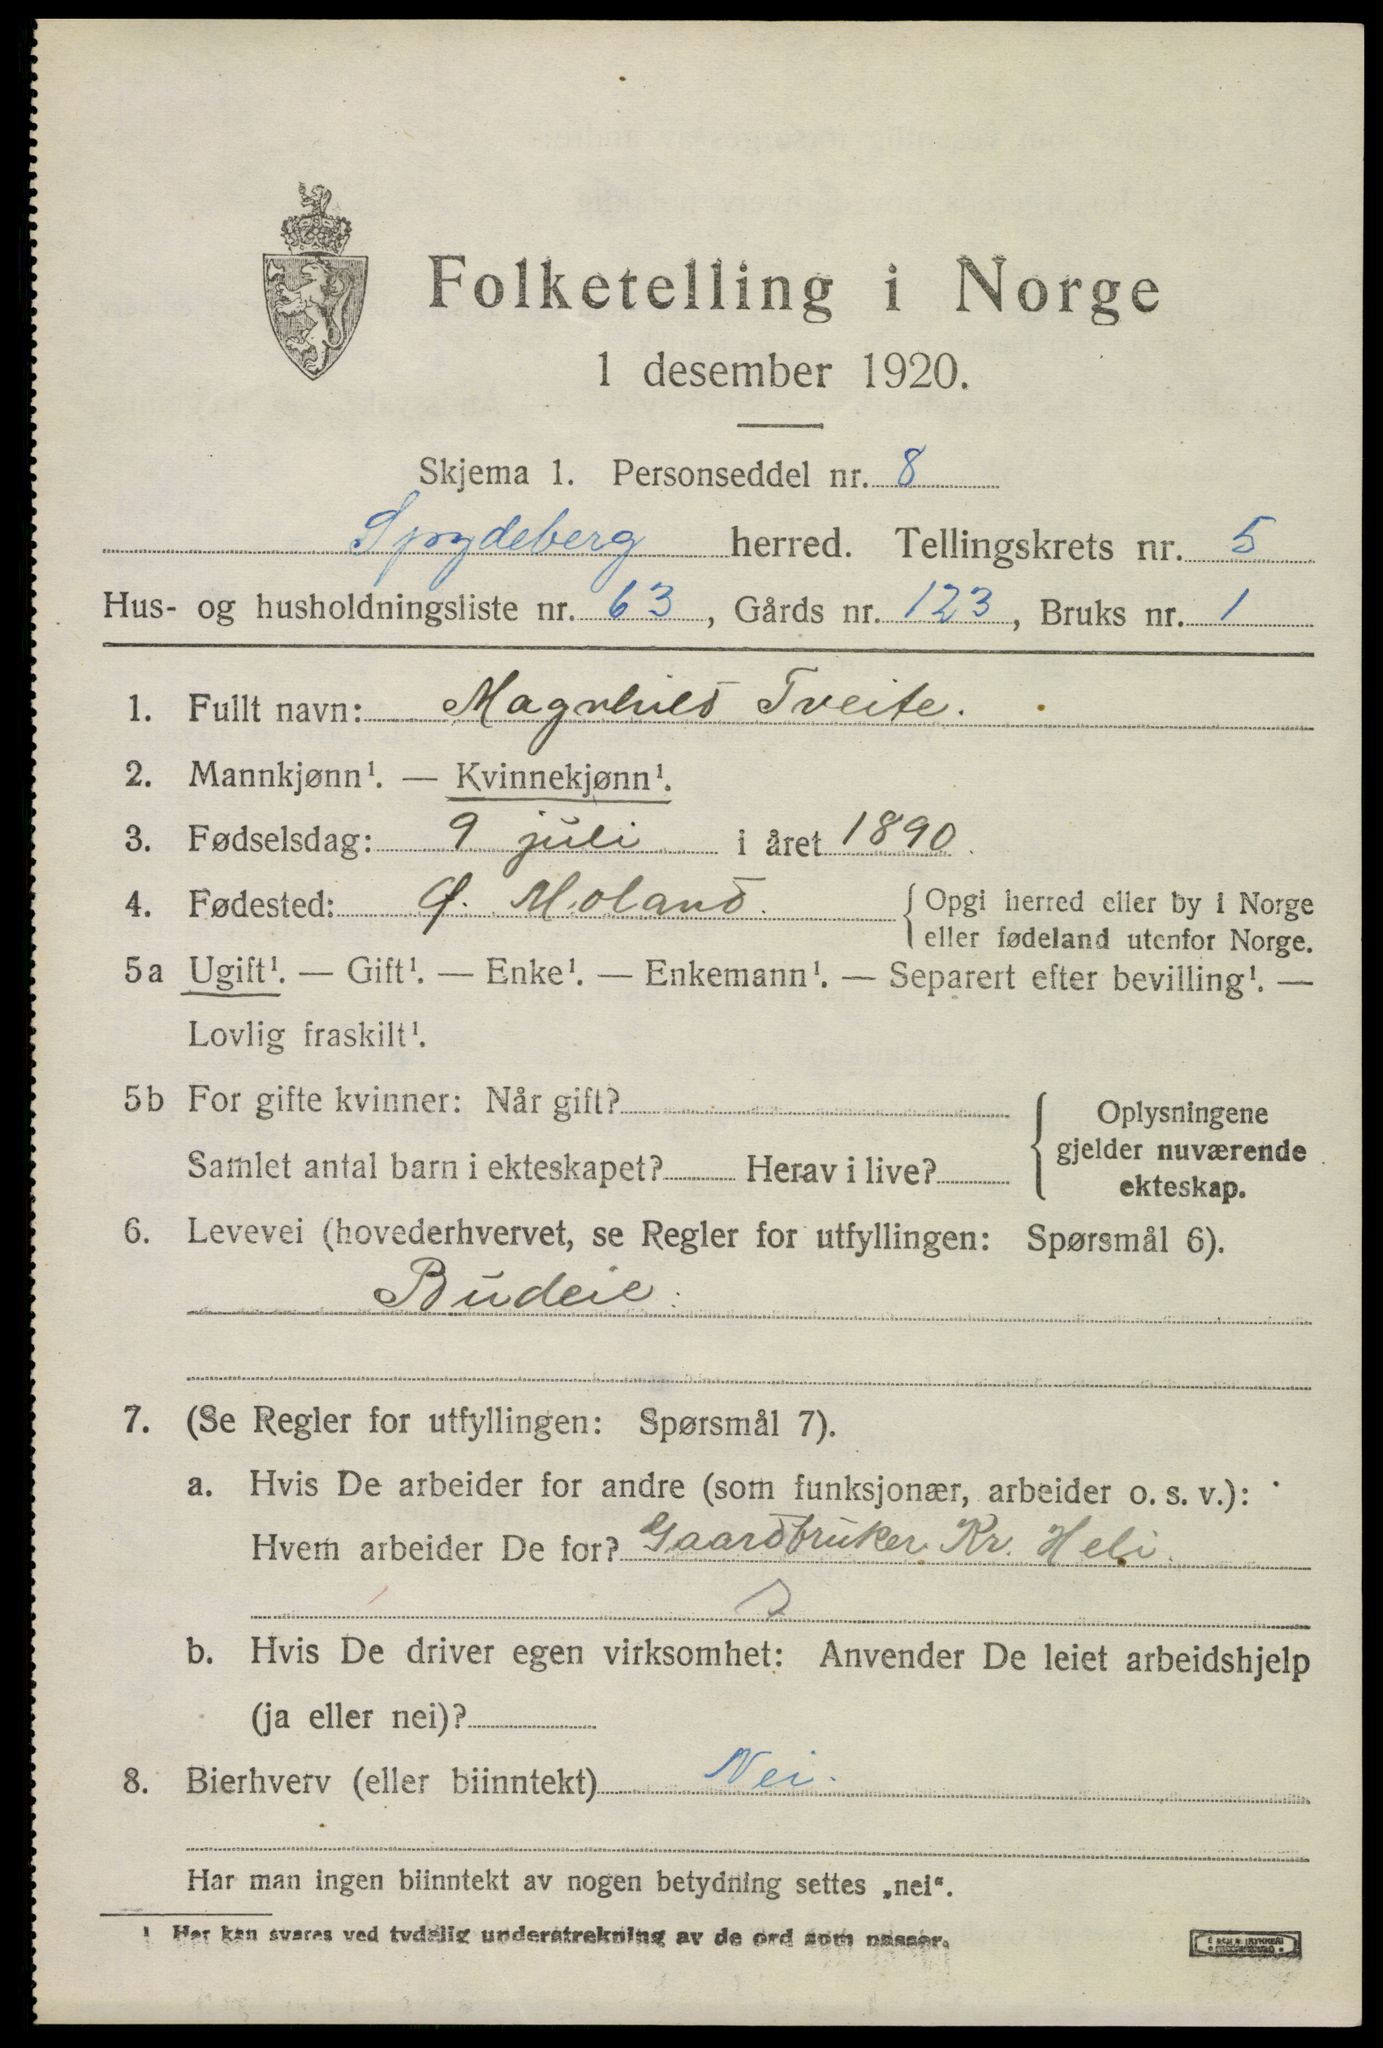 Folketelling i Norge
1 desember 1920.
Skjema 1. Personseddel nr. 8
Spydeberg herred. Tellingskrets nr. 5
Hus- og husholdningsliste nr. 63, Gårds nr. 123, Bruks nr. 1
1. Fullt navn: Magnhild Tveite.
2. Mannkjønn¹. — Kvinnekjønn¹.
3. Fødselsdag: 9 juli i året 1890.
4. Fødested: Ø. Moland. { Opgi herred eller by i Norge
eller fødeland utenfor Norge.
5a Ugift¹. — Gift¹. — Enke¹. — Enkemann¹. — Separert efter bevilling¹. —
Lovlig fraskilt¹.
5b For gifte kvinner: Når gift?
Samlet antal barn i ekteskapet? Herav i live?
Oplysningene
gjelder nuværende
ekteskap.
6. Levevei (hovederhvervet, se Regler for utfyllingen: Spørsmål 6).
Budeie.
7. (Se Regler for utfyllingen: Spørsmål 7).
a. Hvis De arbeider for andre (som funksjonær, arbeider o. s. v.):
Hvem arbeider De for? Gaardbruker Kr. Heli
b. Hvis De driver egen virksomhet: Anvender De leiet arbeidshjelp
(ja eller nei)?
8. Bierhverv (eller biinntekt) Nei.
Har man ingen biinntekt av nogen betydning settes „nei“.
¹ Her kan svares ved tydelig understrekning av de ord som passer.